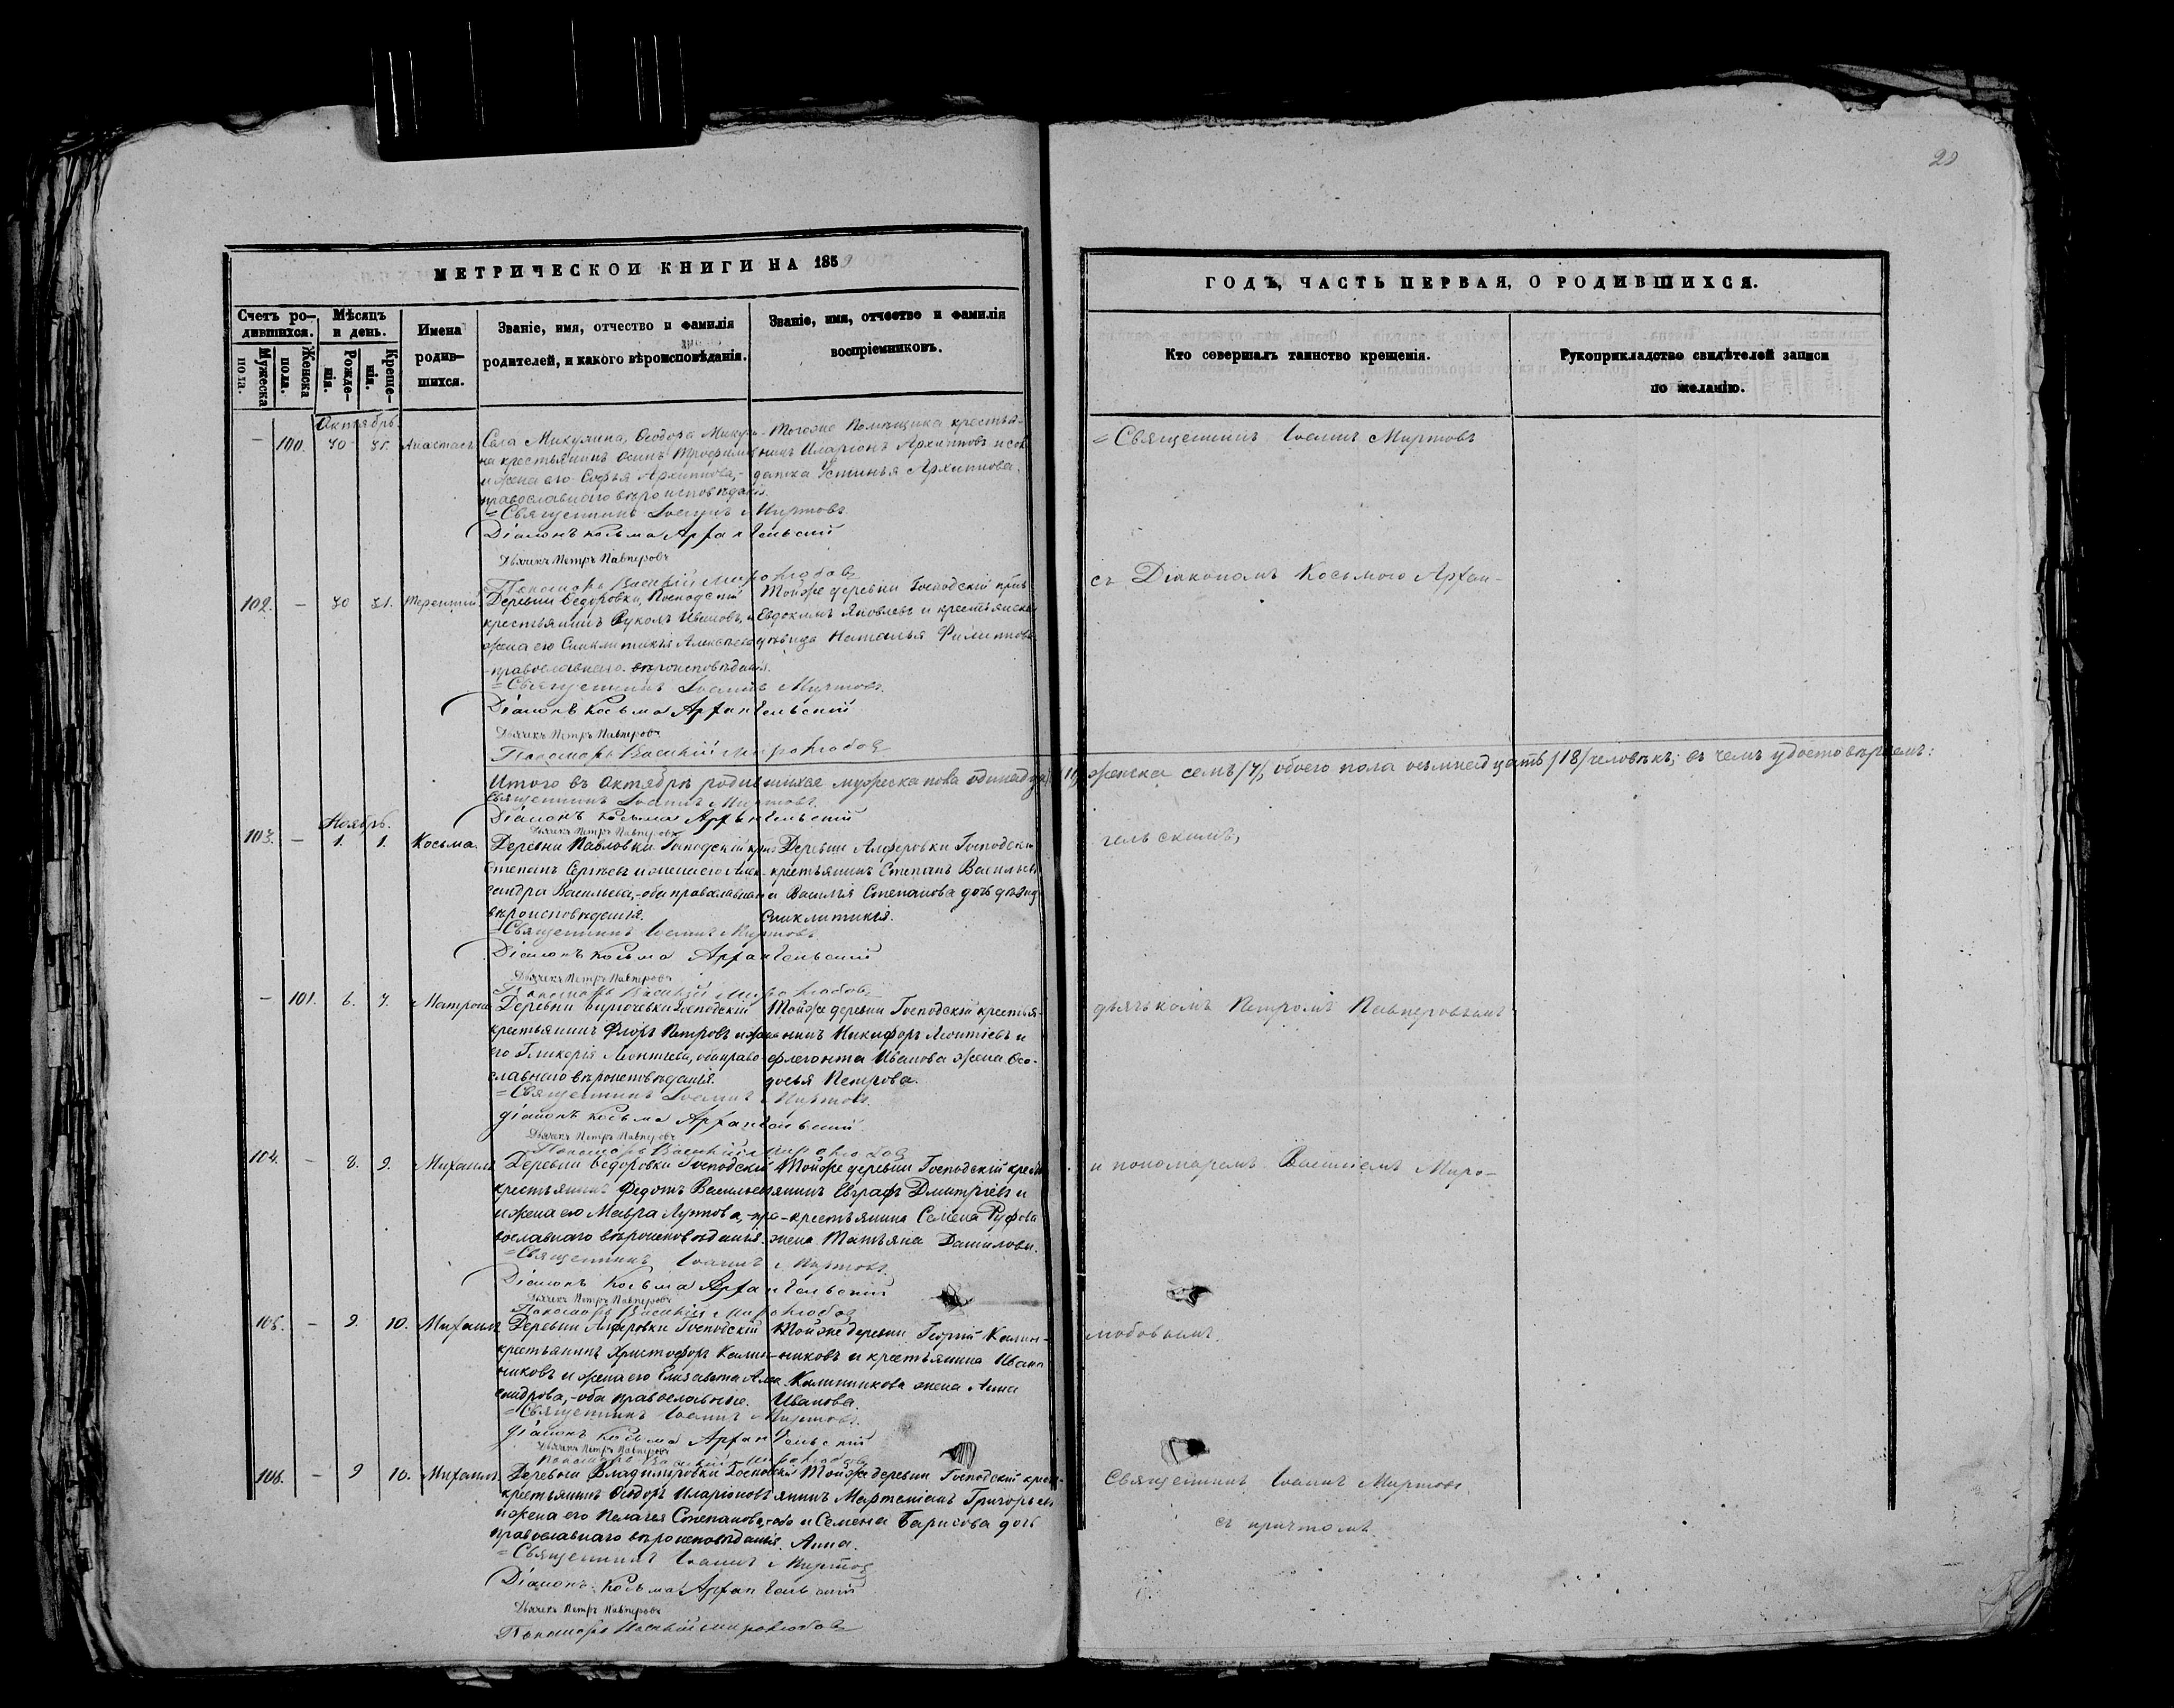 20
МЕТРИЧЕСКОЙ КНИГИ НА 1859
ГОДЪ, ЧАСТЬ ПЕРВАЯ, О РОДИВШИХСЯ.
Счетъ ро-
дившихся.
Мужеска
пола.
Женска
пола.
Мѣсяцъ
и день.
Рожде-
нія.
Креще-
нія.
Имена
родив-
шихся.
Званіе, имя, отчество и фамилія
родителей, и какого вѣроисповѣданія.
Званіе, имя, отчество и фамилія
воспріемниковъ.
Кто совершалъ таинство крещенія.
Рукоприкладство свидѣтелей записи
по желанію.
Октябрь
- 100. 30 31.
Села Микулина, Ѳеодора
крестьянинъ Осипъ
и жена его Софья Архипова,-
православнаго вѣроисповѣданія.
Тогоже Помѣщика крестья-
нинъ Иларіонъ Архиповъ и сол-
датка Устинья Архипова.
= Священникъ Іоаннъ Миртовъ
= Священникъ Іоаннъ Миртовъ
Діаконъ Косьма Архангельскій
Дьячекъ Петръ Павперовъ
Пономарь Василій Миролюбовъ
102. - 30 31. Терентій
Деревни Ѳедоровки, Господскій
крестьянинъ Вуколъ Ивановъ, и
жена его Синклитикія
православнаго вѣроисповѣданія.
Тойже деревни Господскій
Евдокимъ Яковлевъ и
дѣвица Наталья Филиппова
съ Діакономъ Косьмою Архан-
= Священникъ Іоаннъ Миртовъ
Діаконъ Косьма Архангельскій
Дьячекъ Петръ Павперовъ
Пономарь Василій Миролюбовъ
Итого въ Октябрѣ родившихся мужеска пола женска семь /7/, обоего пола осмнадцать /18/ человѣкъ; въ чемъ удостовѣряемъ:
Священникъ Іоаннъ Миртовъ.
Діаконъ Косьма Архангельскій
Дьячекъ Петръ Павперовъ
Ноябрь.
103. - 1. 1. Косьма.
Деревни Павловки Господскій
Степанъ Сергѣевъ и жена его Алек-
сандра Васильева,-оба православнаго
вѣроисповѣданія.
Деревни Алферовки Господскій
крестьянинъ Степанъ Васильевъ
и Василія Степанова дочь дѣвица
Синклитикія.
гельскимъ,
= Священникъ Іоаннъ Миртовъ
Діаконъ Косьма Архангельскій
Дьячекъ Петръ Павперовъ
Пономарь Василій Миролюбовъ
- 101. 6. 7. Матрона
Деревни Господскій
крестьянинъ Флоръ Петровъ и жена
его Гликерія Леонтіева, оба право-
славнаго вѣроисповѣданія.
Тойже деревни Господскій крестья-
нинъ Никифоръ Леонтіевъ и
Флегонта Иванова жена Ѳео-
досья Петрова.
дьячькомъ Петромъ Павперовымъ
= Священникъ Іоаннъ Миртовъ.
діаконъ Косьма Архангельскій
Дьячекъ Петръ Павперовъ
Пономарь Василій Миролюбовъ
104. - 8. 9. Михаилъ
Деревни Ѳедоровки Господскій
крестьянинъ Федотъ Васильевъ
и жена его Мавра Луппова,-пра-
вославнаго вѣроисповѣданія.
Тойже деревни Господскій кресть-
янинъ Евграфъ Дмитріевъ и
крестьянина Семена Руфова
жена Татьяна Данилова.
и пономаремъ Василіемъ Миро-
= Священникъ Іоаннъ Миртовъ.
Діаконъ Косьма Архангельскій
Дьячекъ Петръ Павперовъ
Пономарь Василій Миролюбовъ
105. - 9. 10. Михаилъ
Деревни Алферовки Господскій
крестьянинъ Христофоръ Калин-
никовъ и жена его Елизавета Алек-
сандрова,-оба православные.
Тойже деревни Георгій Калин-
никовъ и крестьянина Ивана
Калинникова жена Анна
Иванова.
любовымъ.
= Священникъ Іоаннъ Миртовъ.
діаконъ Косьма Архангельскій
Дьячекъ Петръ Павперовъ
Пономарь Василій Миролюбовъ
106. - 9 10. Михаилъ
Деревни Владиміровки Господскій
крестьянинъ Ѳеодоръ Иларіоновъ
и жена его Пелагея Степанова, оба
православнаго вѣроисповѣданія.
Тойже деревни Господскій крест-
янинъ Мартеміанъ Григорьевъ
и Семена Барисова дочь
Анна.
Священникъ Іоаннъ Миртовъ
съ причтомъ.
= Священникъ Іоаннъ Миртовъ
Діаконъ Косьма Архангельскій
Дьячекъ Петръ Павперовъ
Пономарь Василій Миролюбовъ